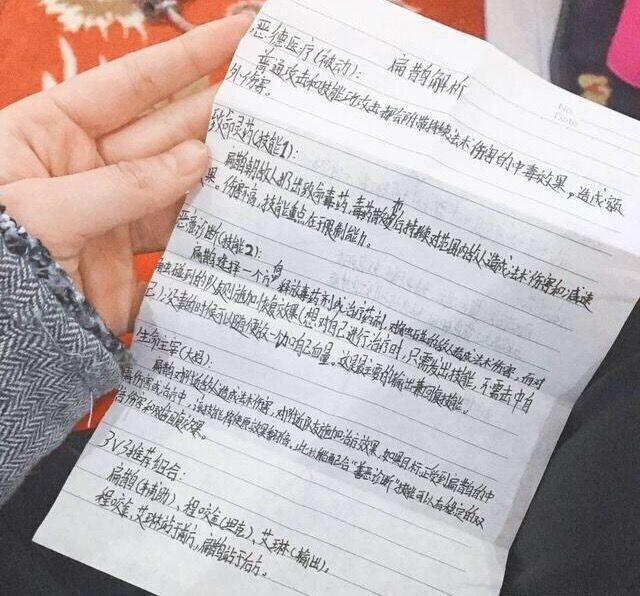 扁鹊解析
No.
Date
恶德医疗(被动):
普通攻击和技能攻击都会附带持续法术伤害的中毒效果,造成额
外伤害。
致命灵药(技能1):
扁鹊朝敌人扔出致命毒药,毒药散发后持续对范围内敌人造成法术伤害和减速
果。伤害不高,技能重点在于限制能力。
恶意诊断(技能2):
扁鹊选择一个方向释放毒药和治疗药剂,对触碰到的敌人造成法术伤害,而对
触碰到的队友则施加恢复效果(想对自己进行治疗时,只需发出技能,不需击中自
己)没事的时候可以随便放一放加自己血量。这是最主要的输出兼回复技能。
生命主宰(大招):
扁鹊对附近敌人造成法术伤害,对附近队友施加治疗效果。如果目标正受到扁鹊的中
毒伤害或治疗中,该技能将使原效果翻倍。此技能配合“善恶诊断”技能可以有稳定的双
倍伤害和双倍回复效果。
3V3推荐组合:
扁鹊(辅助)、程咬金(坦克)、艾琳(输出)。
程咬金、艾琳站于前方,扁鹊站于后方。